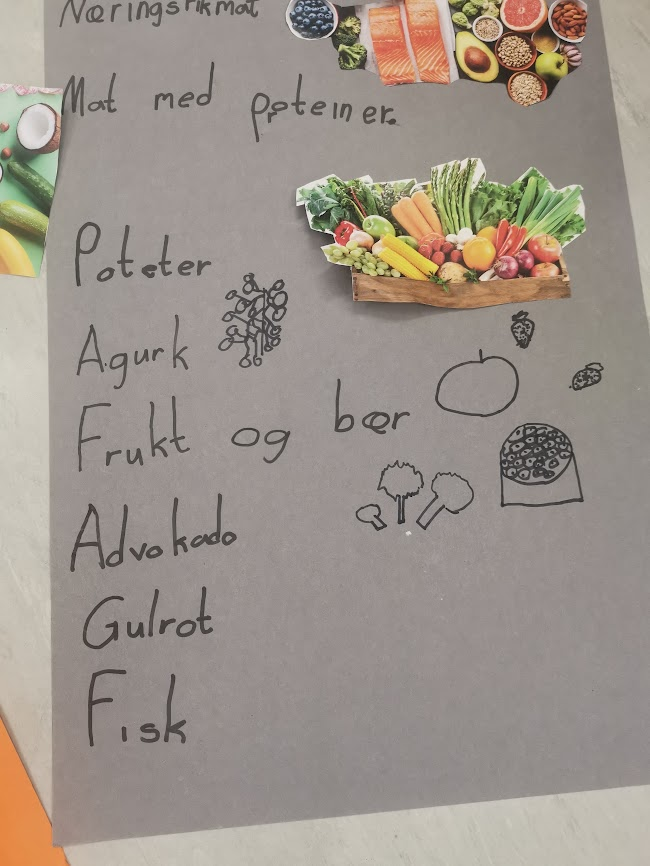 Næringsrikmat
Mat med pøteiner.
Poteter
Agurk
Frukt og bær
Advokado
Gulrot
Fisk